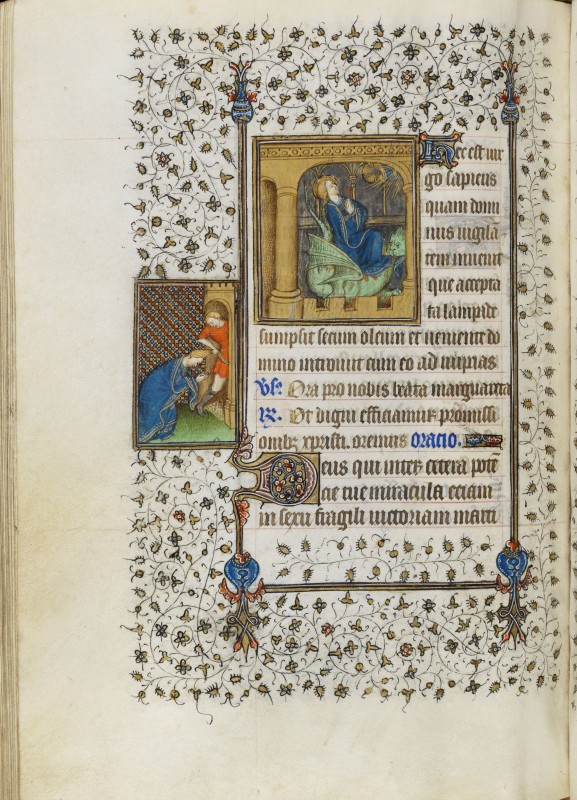 Hec est vir
go sapiens
quam domi
nus vigilā
tem invenit
que accepta
ta lampide
sumpsit secum oleum et veniente do
mino introivit cum eo ad nupcias
Vs. Ora pro nobis beata margareta
R. Ut digni efficiamur promissi
onibꝫ xpristi. oremus Oracio.
Deus qui inter cetera potē
cie tue miracula eciam
in sexu fragili victoriam marti